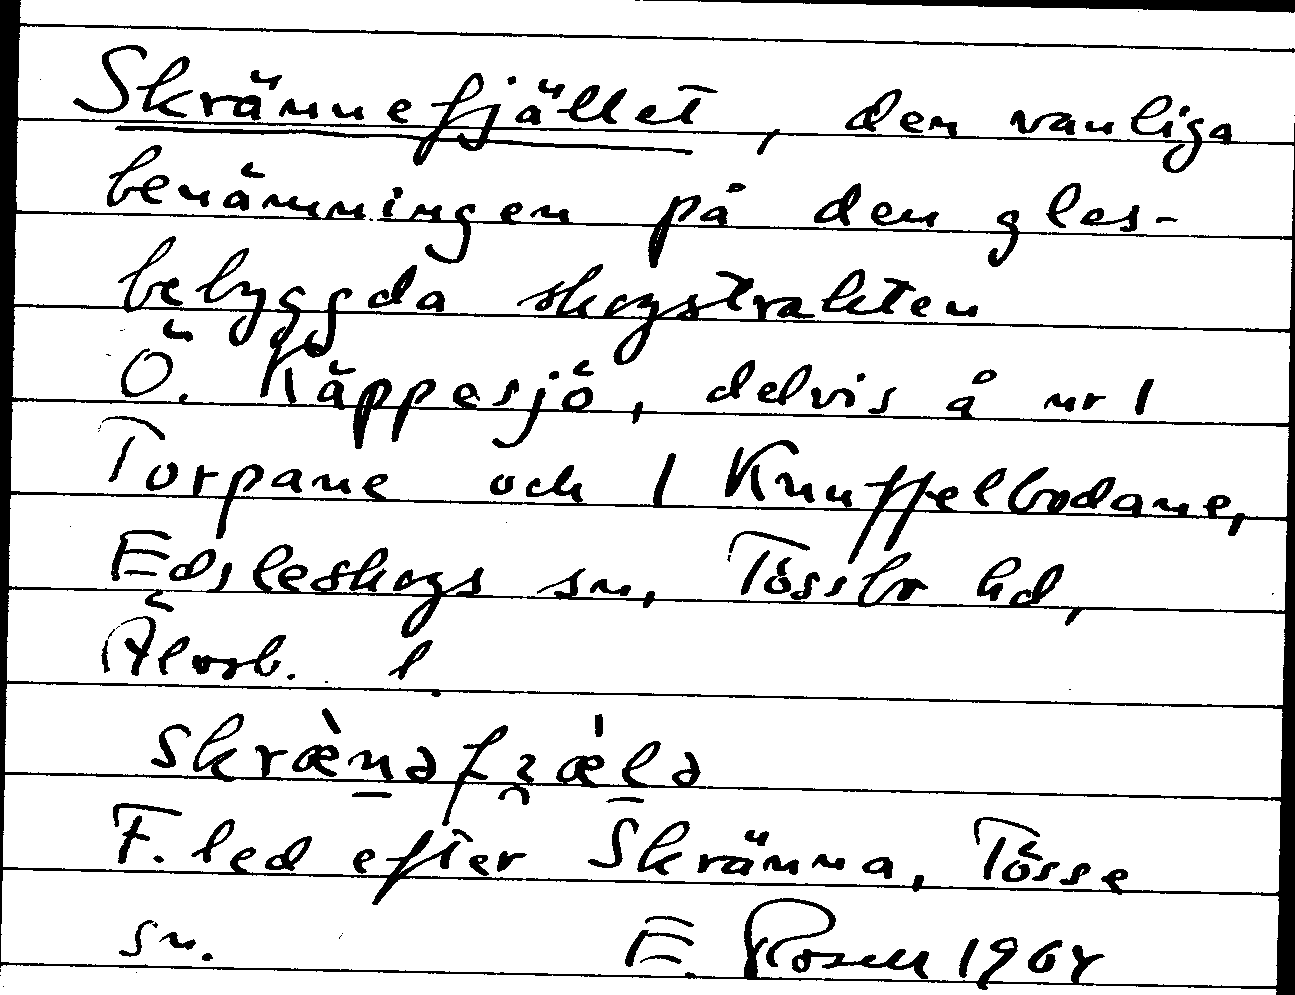 Skrännefjället, den vanliga
benämningen på den gles-
bebyggda skogstrakten
Ö. Käppesjö, delvis å nr 1
Torpane och 1 Knuffelbodane,
Edsleskogs sn, Tössbo hd,
Älvsb. l.
skræ̀nəfjæ̍lə
F. led efter Skränna, Tösse
sn. E. Rosell 1964